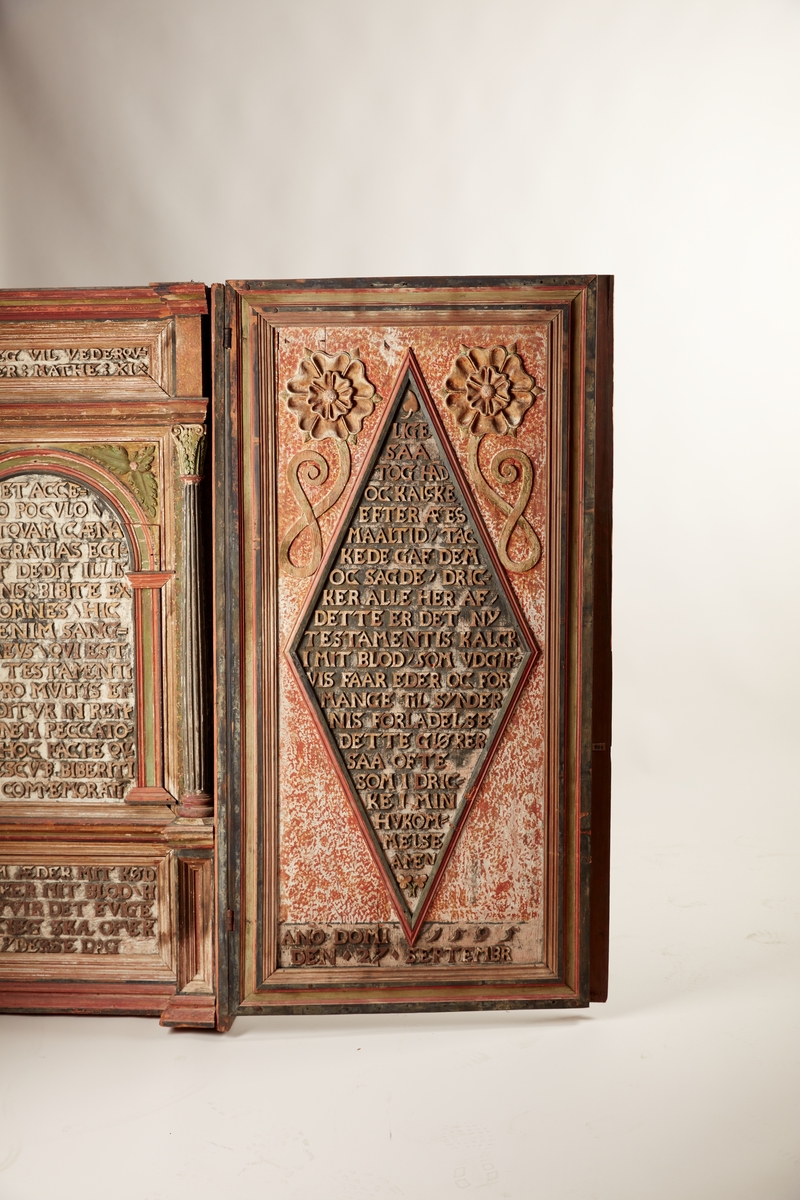 EG VIL VEDERQV
ER: MATHE: XI
ET ACCE-
O POCVLO
TQVAM CÆNA
GRATIAS EGI
T DEDIT ILLIS
NS: BIBITE EX
OMNES \ HIC
ENIM SANG-
EVS \ QVI EST
TESTAMENTI
PRO MVLTIS EF
DITVR IN REM
NEM PECCATO
HOC FACTE
BIBERIT
COMMEMORATI
ÆDER MIT KØD
KER MIT BLOD \ H
DET EVIGE
IEG SKA OPEK
YDERSE DAG
LIGE
SAA
TOG HAD
OC KALCKE
EFTER Æ ES
MAALTID / TAC
KEDE GAF DEM
OC SAGDE / DRIC-
KER ALLE HER AF /
DETTE ER DET NY
TESTAMENTIS KALCK
I MIT BLOD / SOM VDGIF
VIS FAAR EDER OC FOR
MANGE TIL SYNDER
NIS FORLADELSE
DETTE GIØRER
SAA OFTE
SOM I DRIC-
KE I MIN
HVKOM-
MELSE
AMEN
ANO DOMI 1595
DEN 27 SEPTEMBR